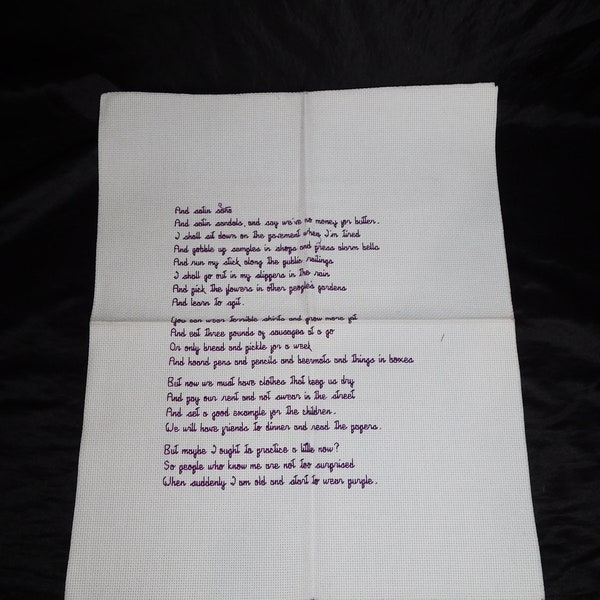 And satin sand
And satin sandals, and say we've no money for butter.
I shall sit down on the pavement when I'm tired
And gobble up samples in shops and press alarm bells
And run my stick along the public railings
I shall go out in my slippers in the rain
And pick the flowers in other people's gardens
And learn to spit.
You can wear terrible shirts and grow more fat
And eat three pounds of sausages at a go
Or only bread and pickle for a week
And hoard pens and pencils and beermats and things in boxes
But now we must have clothes that keep us dry
And pay our rent and not swear in the street
And set a good example for the children.
We will have friends to dinner and read the papers.
But maybe I ought to practice a little now?
So people who know me are not too surprised
When suddenly I am old and start to wear purple.